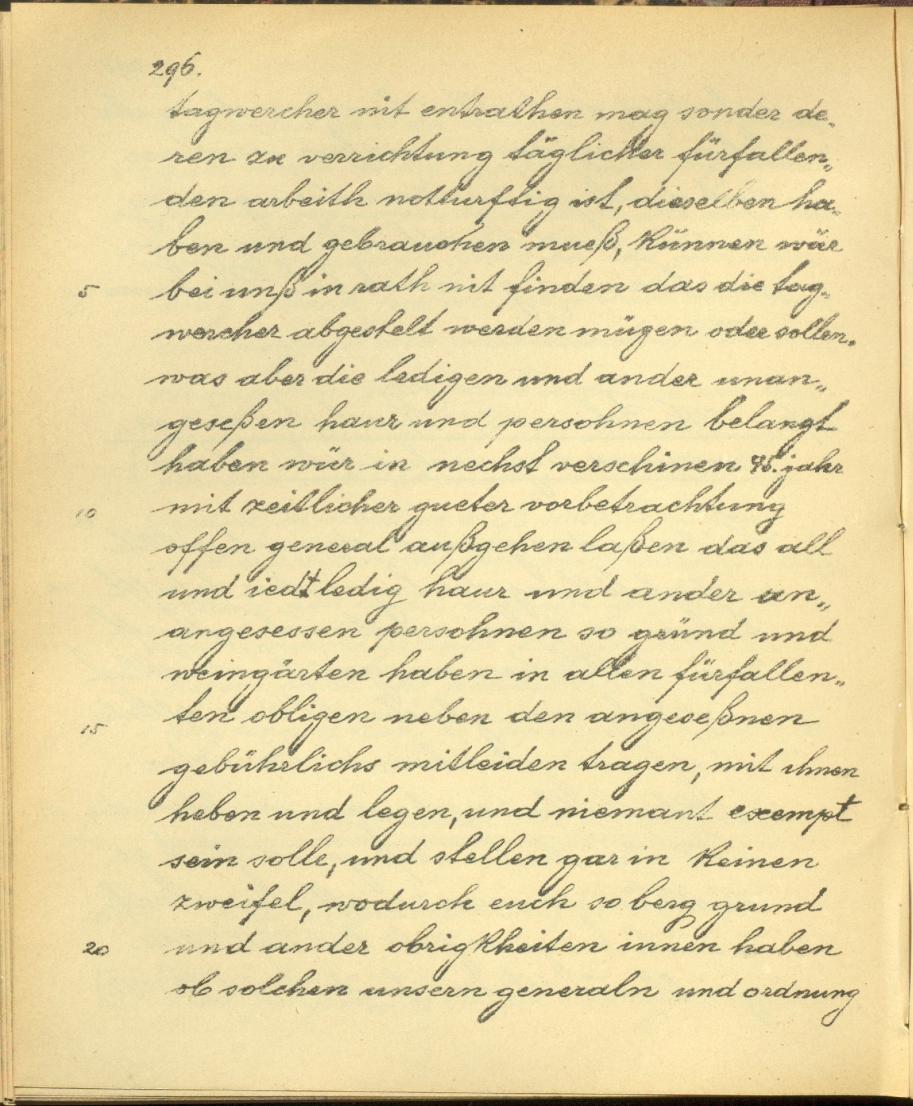 296.
tagwercher nit entrathen mag sonder de-
ren zu verrichtung täglicher fürfallen„
den arbeith notturftig ist, dieselben ha-
ben und gebrauchen mueß, künnen wür
5 bei unß in rath nit finden das die tag-
wercher abgestelt werden mügen oder sollen.
was aber die ledigen und ander unan„
geseßen haur und persohnen belangt
haben wür in nechst verschinen 95. jahr
10 mit zeitlicher gueter vorbetrachtung
offen general außgehen laßen das all
und iedt ledig haur und ander un„
angesessen persohnen so gründ und
weingärten haben in allen fürfallen„
15 ten obligen neben den angeseßnen
gebührlichs mitleiden tragen, mit ihnen
heben und legen, und niemant exempt
sein solle, und stellen gar in keinen
zweifel, wodurch euch so berg grund
20 und ander obrigkheiten innen haben
ob solchen unsern generaln und ordnung